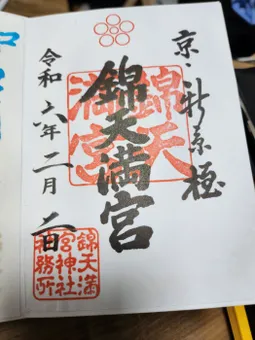 京・新京極
錦天満宮
錦天
満宮
令和六年二月二日
錦天満
宮神社
社務所